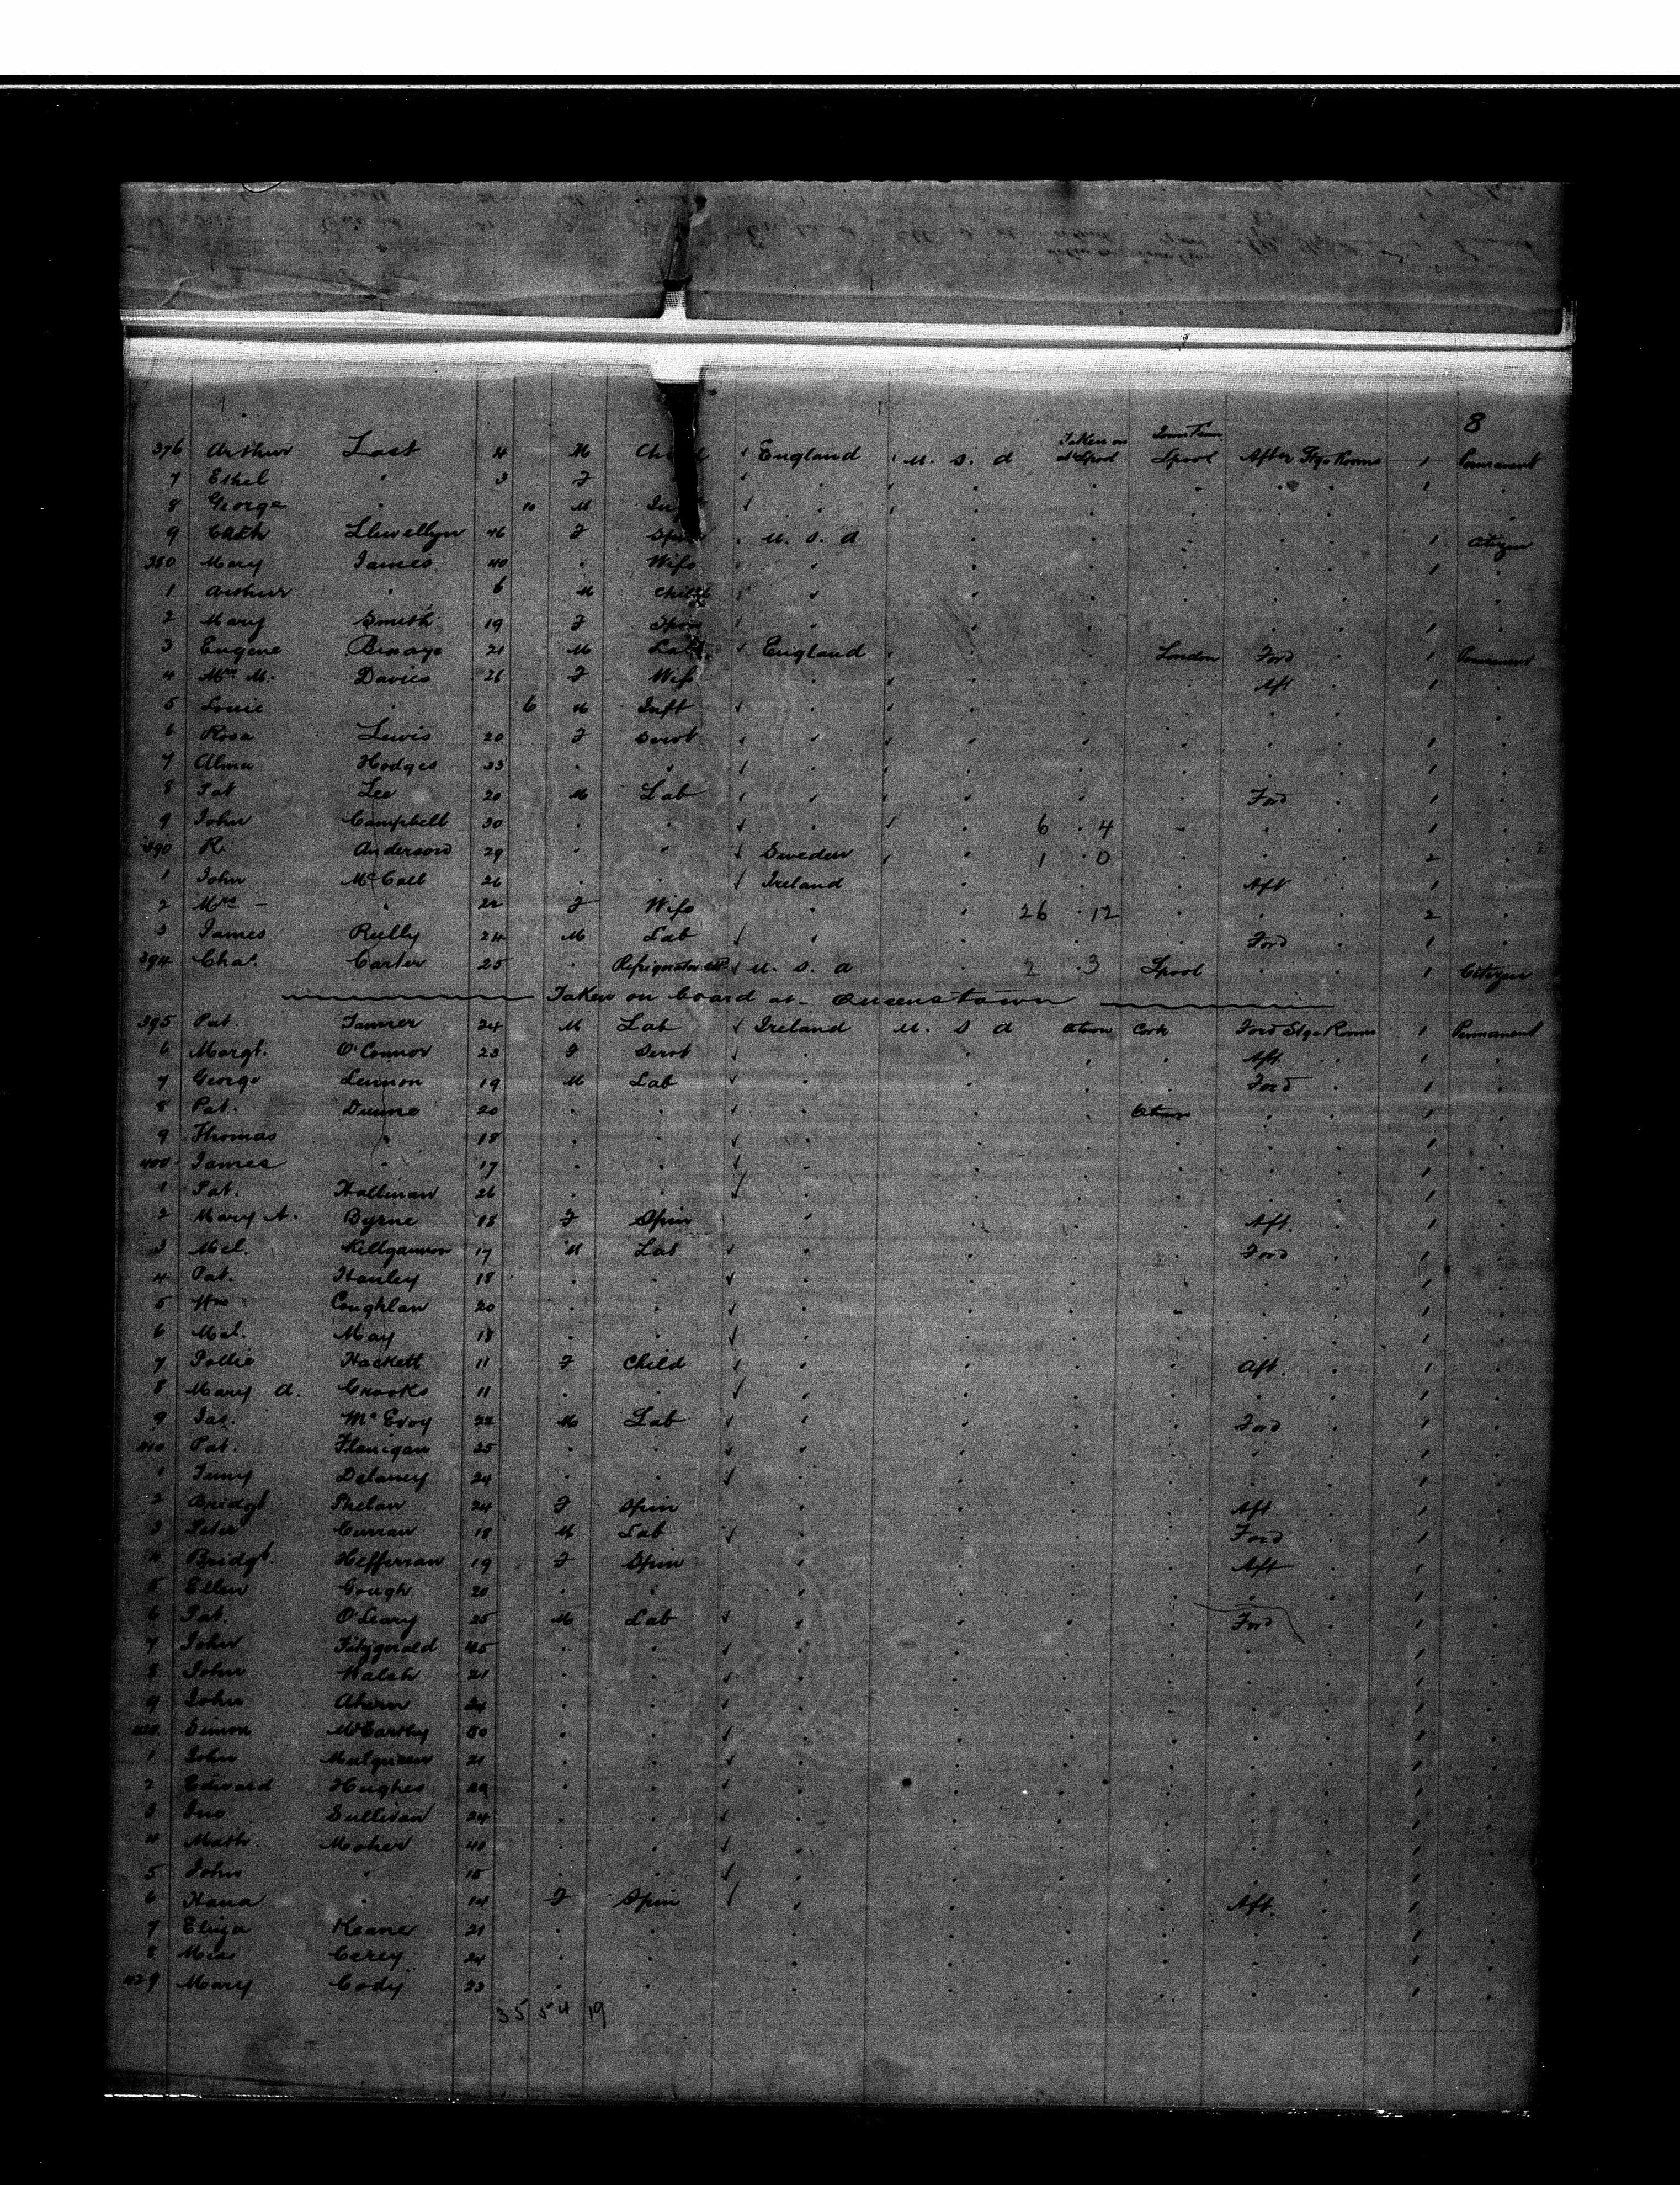 8
Taken on Town From
376 Arthur Last 4 M Child England U. S. A at Lpool Lpool After Stge Rooms 1 Permanent
7 Ethel " 3 F
8 George " 10 M Inft
9 Cath Llewellyn 46 F Spin U. S. A 1 Citizen
380 Mary James 40 " Wife " 1
1 Arthur " 6 M Child "
2 Mary Smith 19 F Spin " 1
3 Eugene 21 M Lab England London Ford 1 Permanent
4 Mrs M. Davies 26 F Wife " Aft 1
5 Louie " 6 M Inft "
6 Rosa Lewis 20 F Servt " 1
7 Alma Hodges 33 " " " 1
8 Pat Lee 20 M Lab " Ford 1
9 John Campbell 30 " " " 6 . 4 1
390 R. Anderson 29 " " Sweden 1 . 0 2
1 John McCall 26 " " Ireland Aft 1
2 Mrs - " 22 F Wife " 26 . 12 2
3 James Reilly 24 M Lab " Ford 1
394 Chas. Carter 25 " U. S. A 2 . 3 Lpool " 1 Citizen
Taken on board at - Queenstown
395 Pat. 24 M Lab Ireland U. S. A Cork Ford Stge Rooms 1 Permanent
6 Margt. O'Connor 23 F Servt " Aft. 1
7 George Lennon 19 M Lab " Ford 1
8 Pat. Dunne 20 " " " 1
9 Thomas " 18 " " " 1
400 James " 17 " " " 1
1 Pat. Hallinan 26 " " " 1
2 Mary A. Byrne 18 F Spin " Aft. 1
3 Mcl. Killgannon 17 M Lab " Ford 1
4 Pat. Hanley 18 " " " 1
5 Wm Coughlan 20 " " " 1
6 Mcl. May 18 " " " 1
7 Pollie Hackett 11 F Child " Aft. 1
8 Mary A. Crooks 11 " " " 1
9 Jas. McEvoy 22 M Lab " Ford 1
410 Pat. Flanigan 25 " " " 1
1 Delaney 24 " " " 1
2 Bridgt Phelan 24 F Spin " Aft 1
3 Peter Curran 18 M Lab " Ford 1
4 Bridgt. Heffernan 19 F Spin " Aft 1
5 Ellen Gough 20 " " " 1
6 Pat. O'Leary 25 M Lab " Ford 1
7 John Fitzgerald 45 " " " 1
8 John Walsh 21 " " " 1
9 John Ahern 24 " " " 1
420 Simon McCarthy 50 " " " 1
1 John Mulqueen 21 " " " 1
2 Edward Hughes " " " 1
3 Jno Sullivan 24 " " " 1
4 Math. Maher 40 " " " 1
5 John " 15 " " " 1
6 Hana " 14 F Spin " Aft. 1
7 Eliza Keane 21 " " " 1
8 Miss Carey 24 " " " 1
429 Mary Cody 23 " " " 1
35 54 19